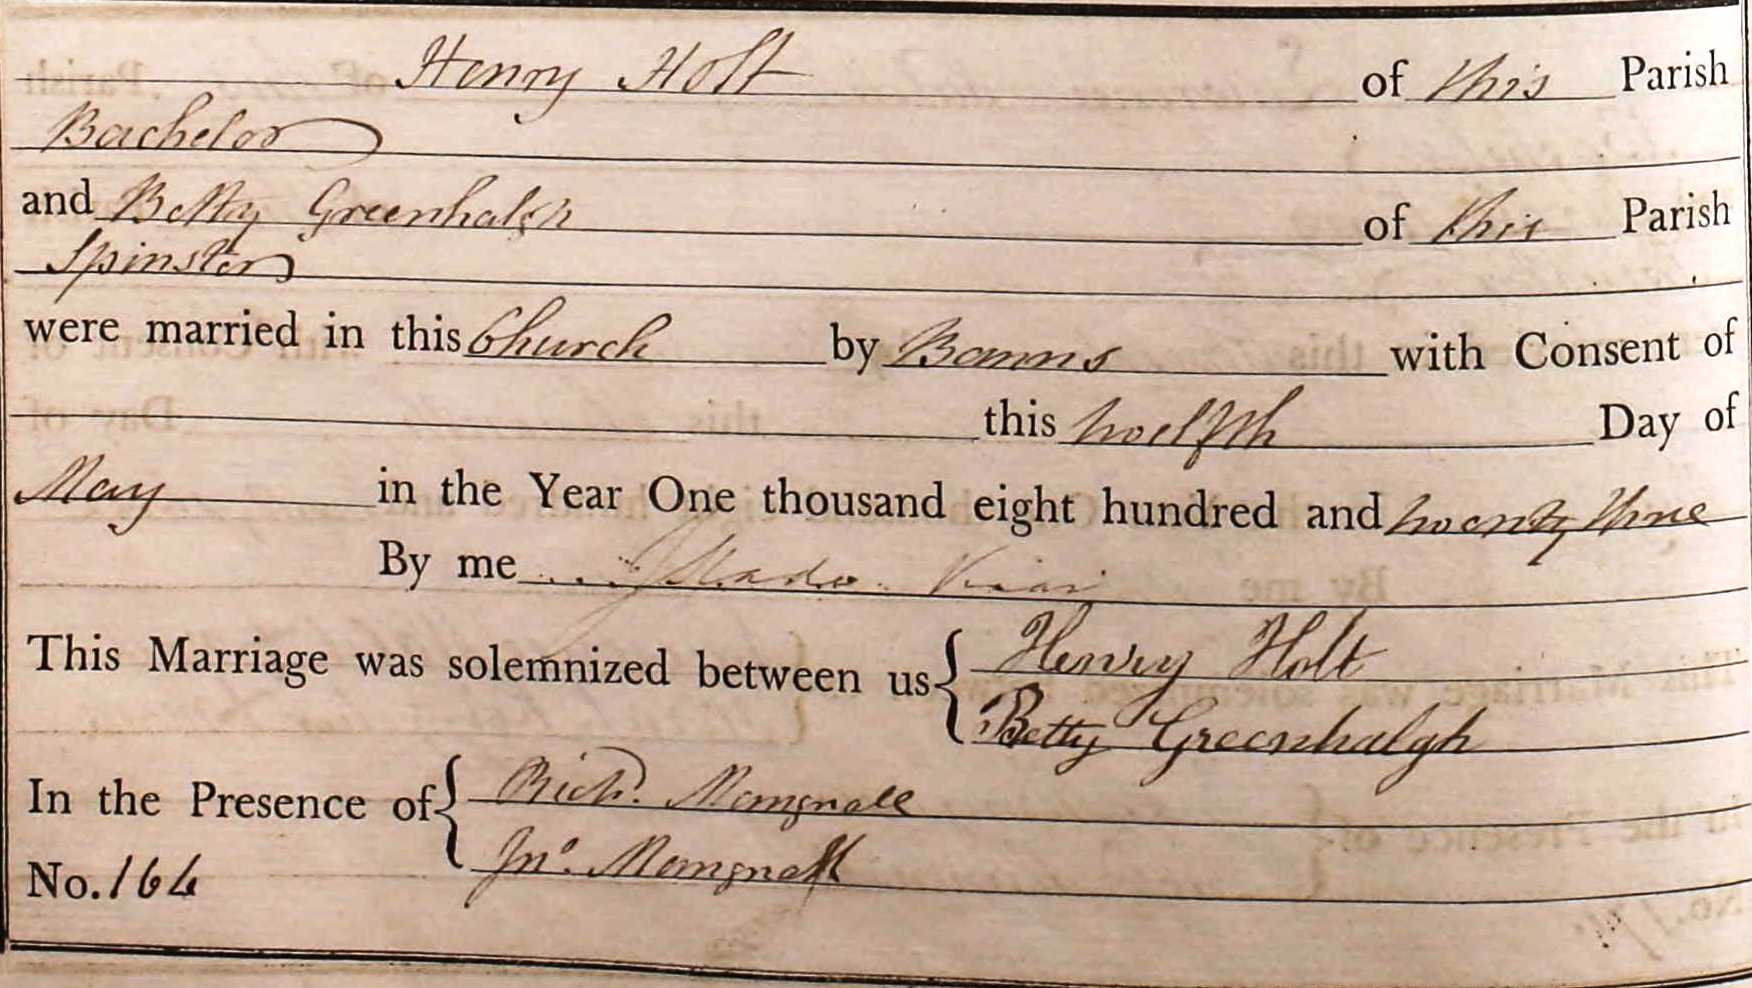 Henry Holt of this Parish
Bachelor
and Betty Greenhalgh of this Parish
Spinster
were married in this Church by Banns with Consent of
this twelfth Day of
May in the Year One thousand eight hundred and twenty Nine
By me J Slade Vicar
This Marriage was solemnized between us { Henry Holt
Betty Greenhalgh
In the Presence of { Richd. Mangnall
Jno. Mangnall
No. 164